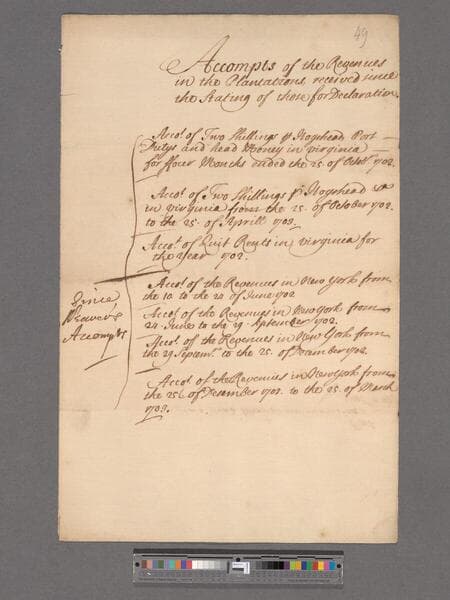 49
Accompts of the Revenues
in the Plantations, received since
the Stating of those for Declaration.
Accot. of Two Shillings p Hogshead Port
Dutys and head Money in Virginia
for ffour Months ended the 25. of Octobr. 1702.
Accot. of Two Shillings p Hogshead &a
in Virginia from the 25. of October 1702.
to the 25. of Aprill 1703.
Accot. of Quit Rents in Virginia for
the Year 1702.
Since
Weavers
Accompts
Accot. of the Revenues in New York from
the 10. to the 24 of June 1702
Accot. of the Revenues in New York from
24. June to the 29. September 1702.
Accot. of the Revenues in New York from
the 29 Septemr. to the 25. of December 1702.
Accot. of the Revenues in New York from
the 25th. of December 1702. to the 25. of March
1703.